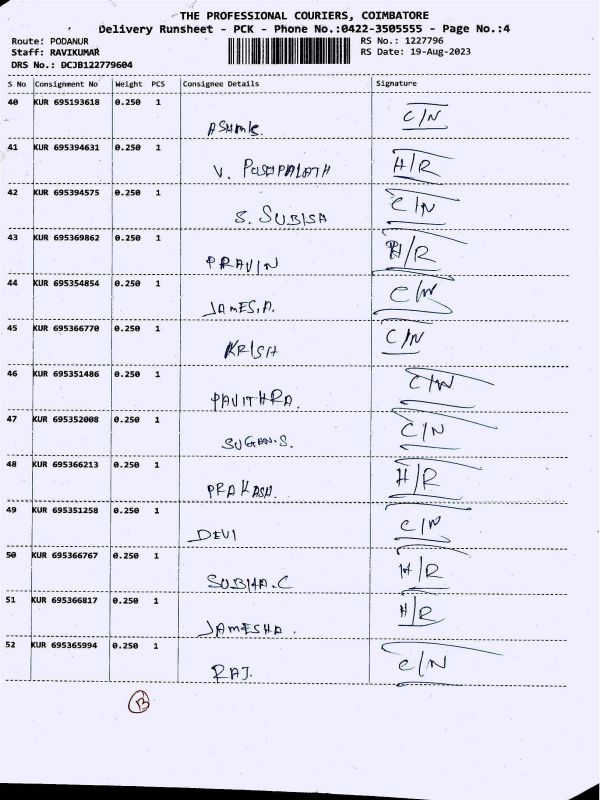 THE PROFESSIONAL COURIERS, COIMBATORE
Delivery Runsheet - PCK - Phone No.:0422-3505555 - Page No.:4
Route: PODANUR RS No.: 1227796
Staff: RAVIKUMAR RS Date: 19-Aug-2023
DRS No.: DCJB122779604
S No Consignment No Weight PCS Consignee Details Signature
40 KUR 695193618 0.250 1 C/N
Ashmik
41 KUR 695394631 0.250 1 H/R
V. PUSHPALATH
42 KUR 695394575 0.250 1 C/N
S. SUBISA
43 KUR 695369862 0.250 1 H/R
PRAVIN
44 KUR 695354854 0.250 1 C/N
JAMES.A.
45 KUR 695366770 0.250 1 C/N
KRISH
46 KUR 695351486 0.250 1 C/N
PAVITHRA.
47 KUR 695352008 0.250 1 C/N
SUGAN.S.
48 KUR 695366213 0.250 1 H/R
PRAKASH.
49 KUR 695351258 0.250 1 C/N
DEVI
50 KUR 695366767 0.250 1 H/R
SUBHA.C
51 KUR 695366817 0.250 1 H/R
JAMESHA.
52 KUR 695365994 0.250 1 C/N
RAJ.
B